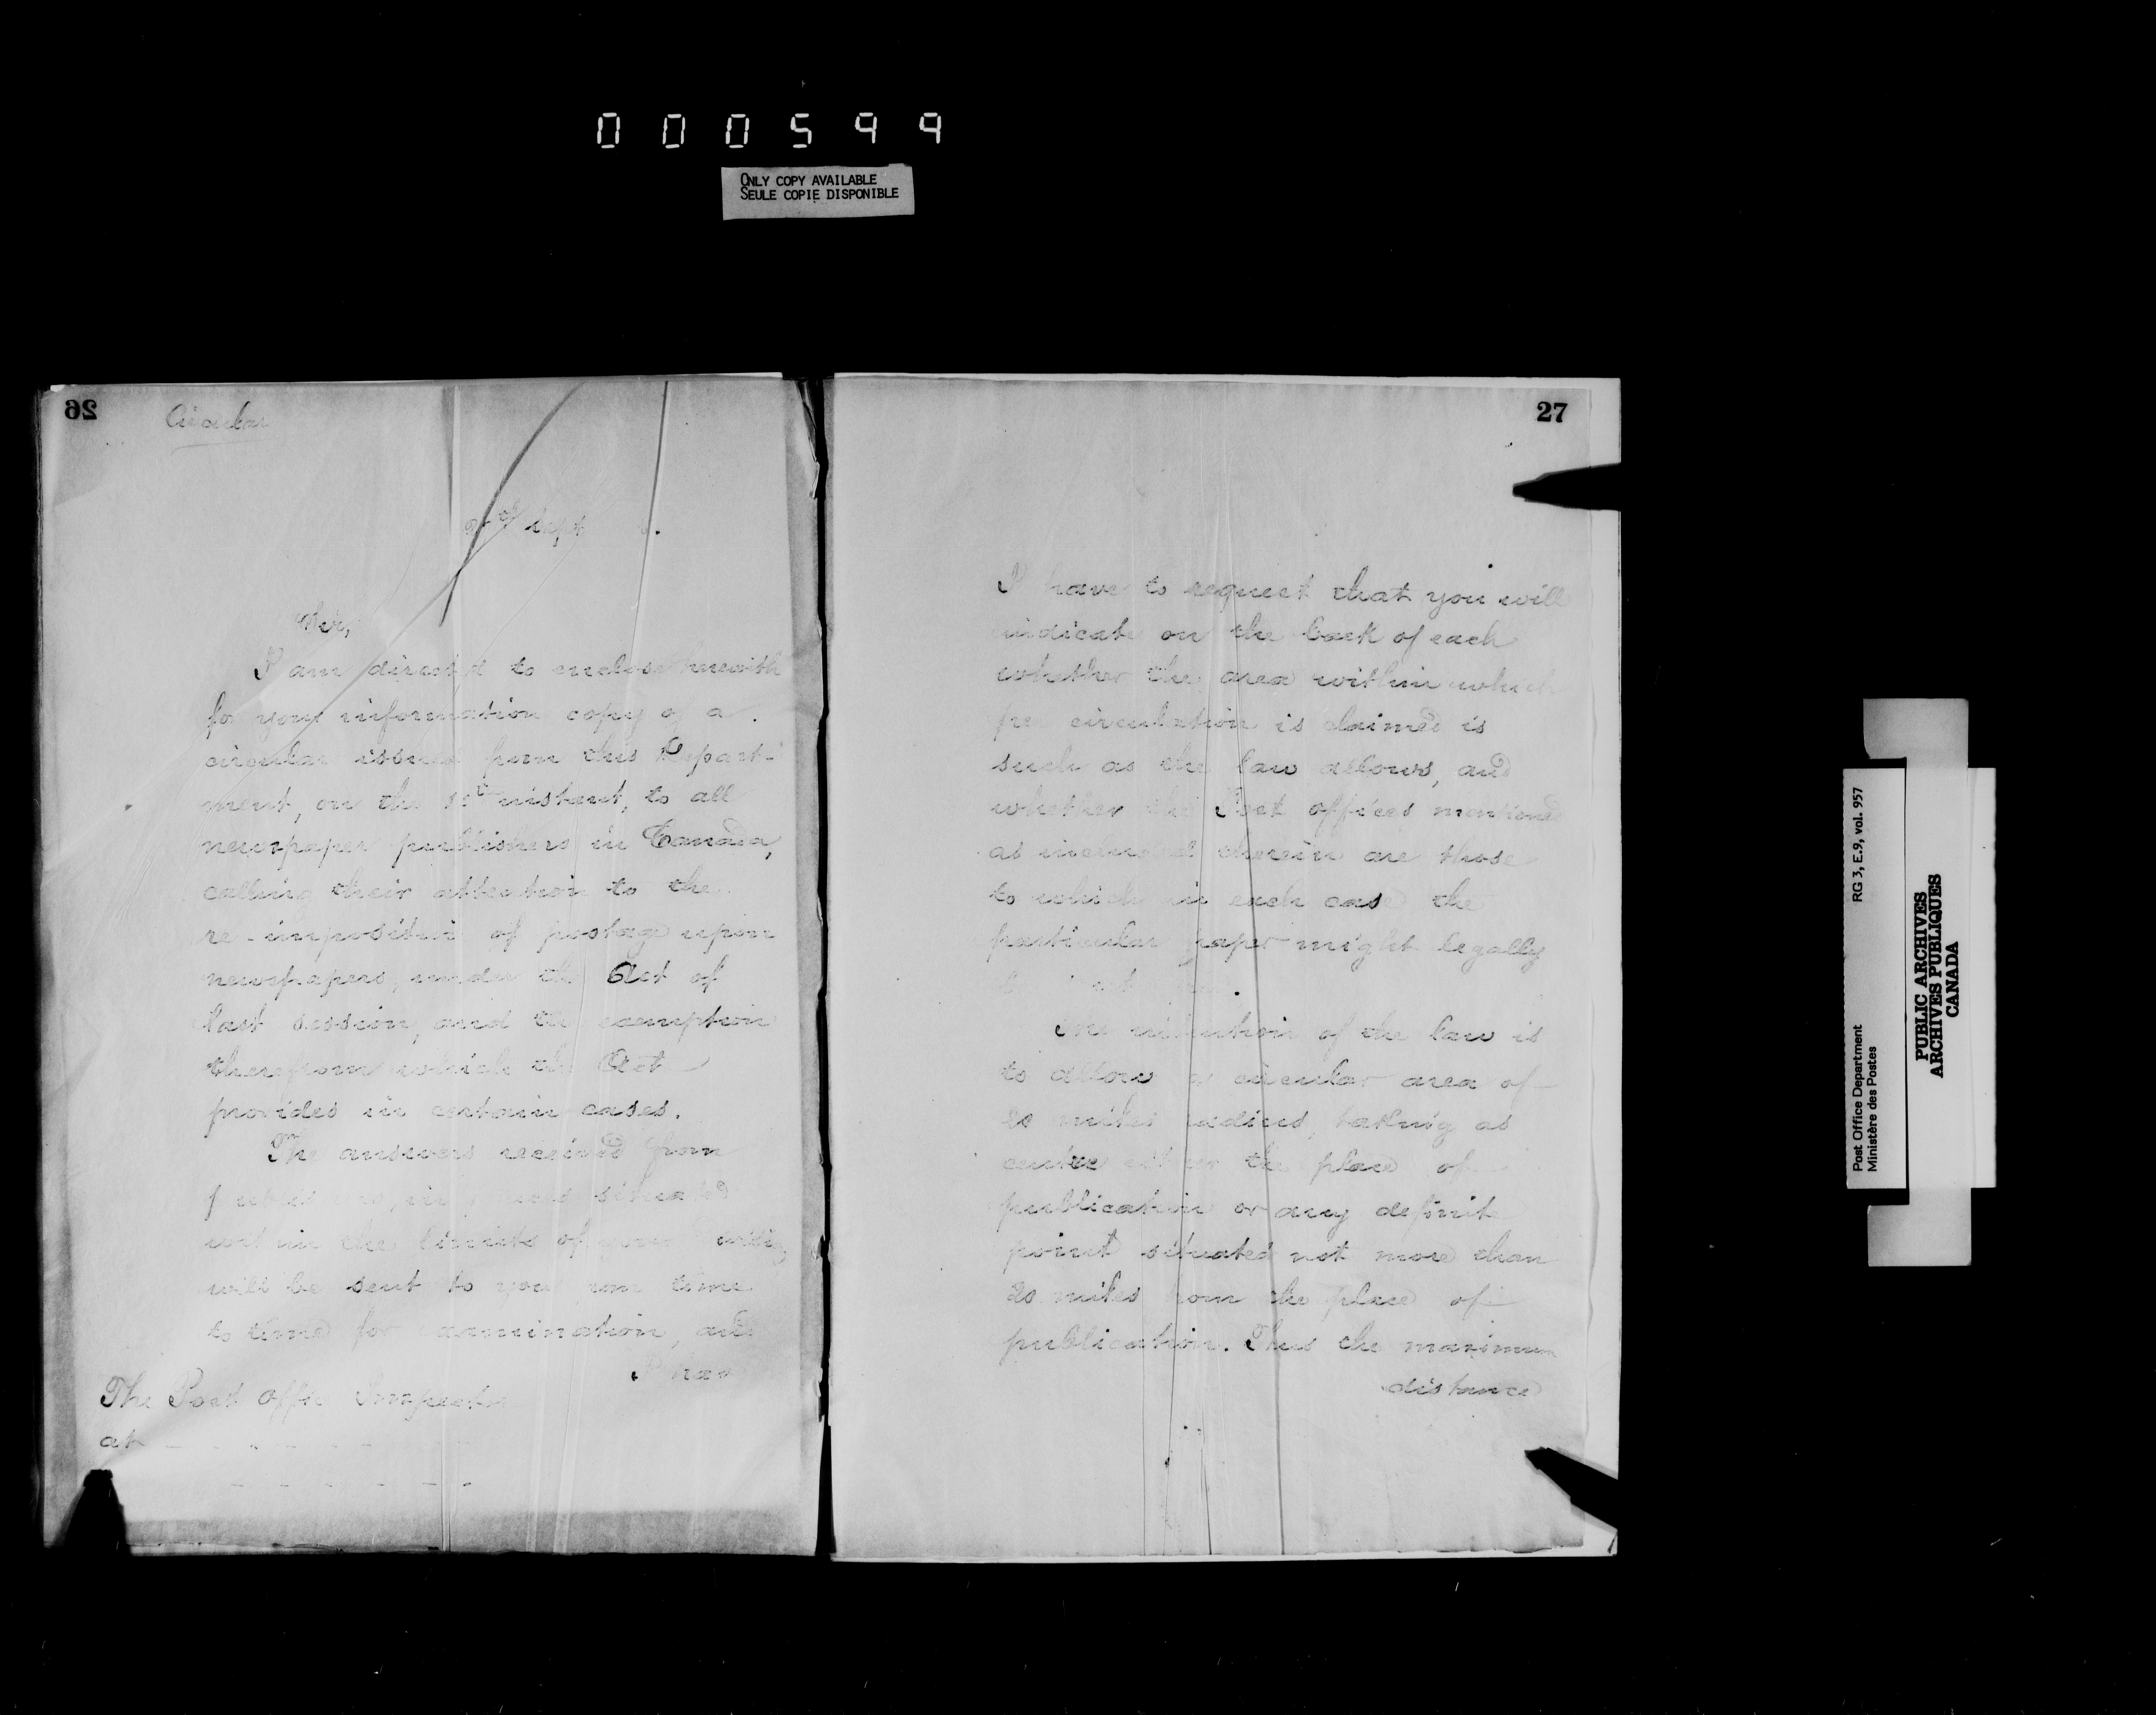 000599
ONLY COPY AVAILABLE
SEULE COPIE DISPONIBLE
26
Circular
Sept
Sir,
I am directed to enclose herewith
for your information copy of a
circular issued from this Depart-
ment, on the instant, to all
newspaper publishers in Canada,
calling their attention to the
re-imposition of postage upon
newspapers, under the Act of
last session, and the exemption
therefrom which the Act
provides in certain cases.
The answers received from
situated
within the limits of your
will be sent to you from time
to time for examination, and
I have
The Post Office Inspector
at
27
I have to request that you will
indicate on the back of each
whether the area within which
circulation is claimed is
such as the law allows, and
whether the Post offices mentioned
as included therein are those
to which in each case the
particular paper might legally
The intention of the law is
to allow a circular area of
20 miles radius, taking as
centre either the place of
publication or any definite
point situated not more than
20 miles from the place of
publication. Thus the maximum
distance
Post Office Department
Ministère des Postes
RG 3, E.9, vol. 957
PUBLIC ARCHIVES
ARCHIVES PUBLIQUES
CANADA